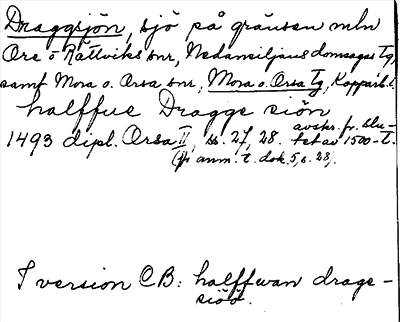 Draggsjön, sjö på gränsen mln
Ore o Rättviks snr, Nedansiljans domsagas tg,
samt Mora o. Orsa snr, Mora o. Orsa tg, Kopparb. l.
halffue Dragge siön
1493 dipl. Orsa II, ss. 27, 28. avskr. fr. slu-
tet av 1500-t.
(Jfr anm. t. dok. 5, s. 28).
I version CB: halffwan drage-
siöö.